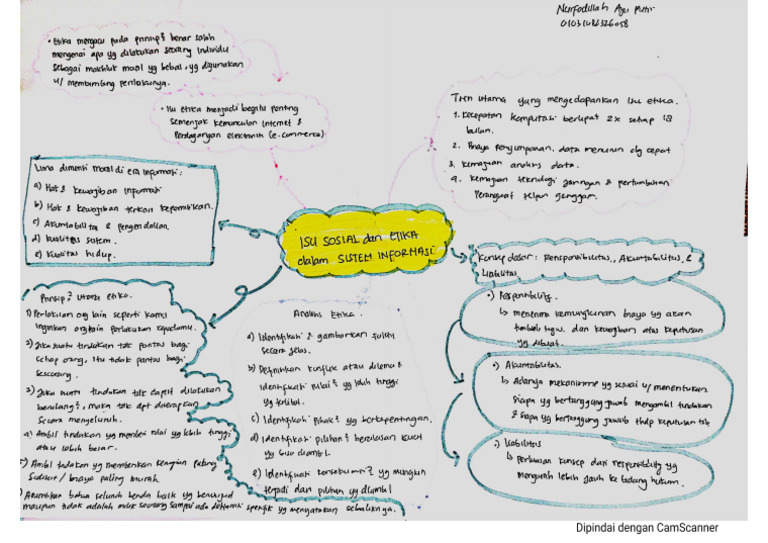 Nurfadillah Ayu Putri
01031182326058
• Etika mengacu pada prinsip² benar salah
mengenai apa yg dilakukan seorang individu
sebagai makhluk moral yg bebas, yg digunakan
u/ membimbing perilakunya.
• Isu etika menjadi begitu penting
semenjak kemunculan Internet &
Perdagangan elektronik (e-commerce)
Tren utama yang mengedapankan isu etika.
1. kecepatan komputasi berlipat 2x setiap 18
bulan.
2. Biaya penyimpanan data menurun dg cepat
3. kemajuan analisis data.
4. kemajuan teknologi jaringan & pertumbuhan
Perangkat telpon genggam.
Lima dimensi moral di era informasi:
a) Hak & kewajiban informasi
b) Hak & kewajiban terkait kepemilikan.
c) Akuntabilitas & pengendalian.
d) kualitas sistem.
e) kualitas hidup.
ISU SOSIAL dan ETIKA
dalam SISTEM INFORMASI
konsep dasar: Responsibilitas, Akuntabilitas, &
Liabilitas
•) Responsibility.
↳ menerima kemungkinan biaya yg akan
timbul, tugas, dan kewajiban atas keputusan
yg dibuat.
•) Akuntabilitas.
↳ Adanya mekanisme yg sesuai u/ menentukan
siapa yg bertanggung jawab mengambil tindakan
& siapa yg bertanggung jawab thdp keputusan tsb
•) liabilitas
↳ Perluasan konsep dari responsibility yg
mengarah lebih jauh ke bidang hukum.
Prinsip² utama etika.
1) Perlakukan org lain seperti kamu
inginkan org lain perlakukan kepadamu.
2) Jika suatu tindakan tdk pantas bagi
setiap orang, itu tidak pantas bagi
seseorang.
3) Jika suatu tindakan tdk dapat dilakukan
berulang², maka tdk dpt diterapkan
secara menyeluruh.
4) Ambil tindakan yg memberi nilai yg lebih tinggi
atau lebih besar.
5) Ambil tindakan yg memberikan kerugian paling
sedikit / biaya paling murah.
) Asumsikan bahwa seluruh benda baik yg berwujud
maupun tidak adalah milik seseorang sampai ada deklarasi spesifik yg menyatakan sebaliknya.
Analisis Etika.
a) Identifikasi & gambarkan fakta
secara jelas.
b) Definisikan konflik atau dilema &
identifikasi nilai² yg lebih tinggi
yg terlibat.
c) Identifikasi pihak² yg berkepentingan.
d) Identifikasi pilihan² beralasan kuat
yg bisa diambil
e) Identifikasi konsekuensi² yg mungkin
terjadi dari pilihan yg diambil
Dipindai dengan CamScanner